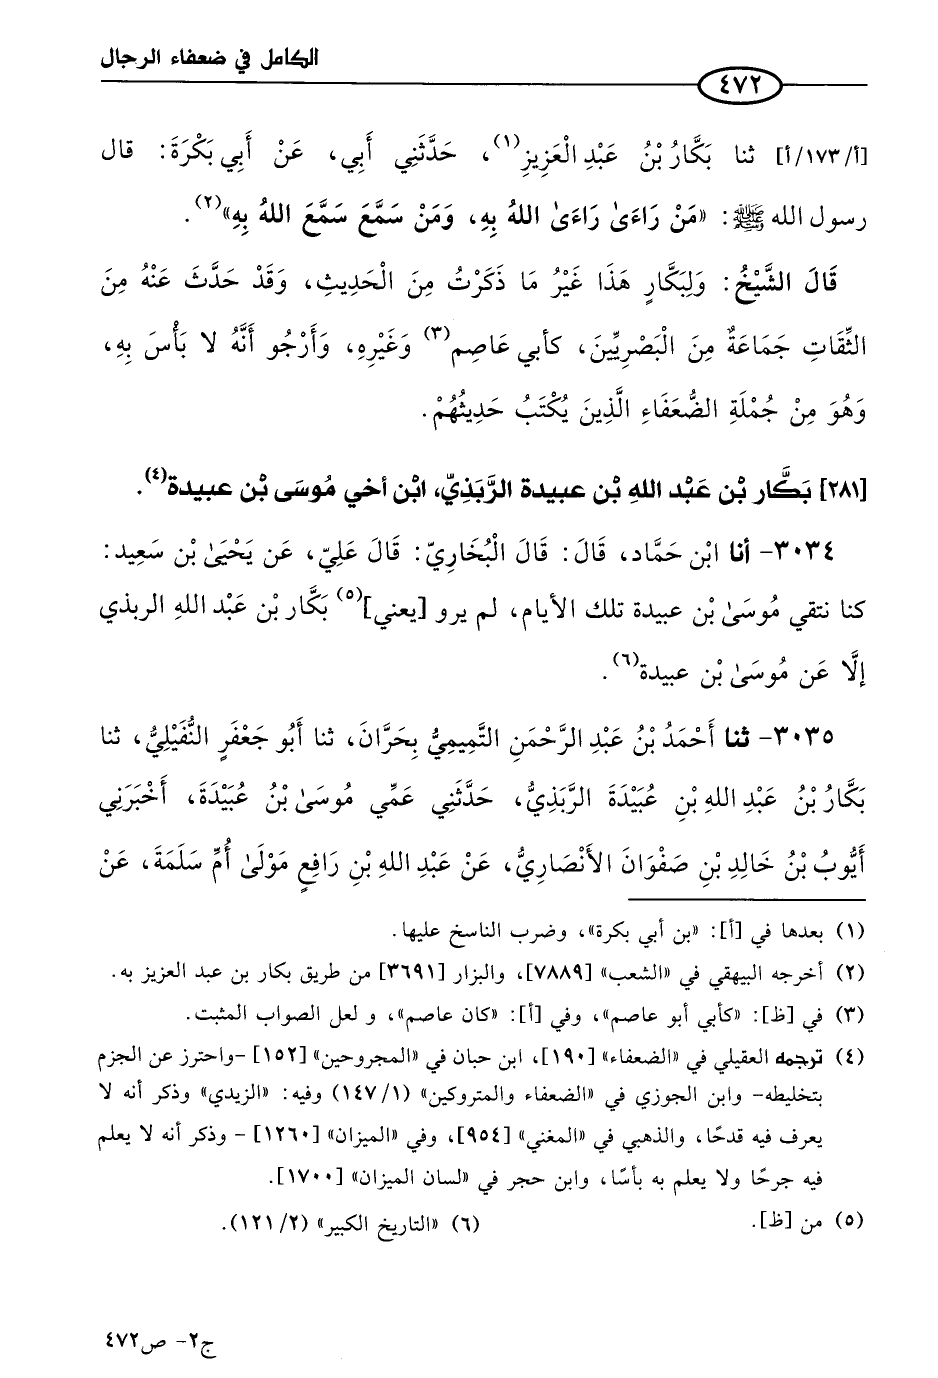 الكامل في ضعفاء الرجال
٤٧٢
[أ/١٧٣/أ] ثنا بَكَّارُ بْنُ عَبْدِ الْعَزِيزِ(١)، حَدَّثَنِي أَبِي، عَنْ أَبِي بَكْرَةَ: قال
رسول الله ﷺ: «مَنْ رَاءَىٰ رَاءَىٰ اللهُ بِهِ، وَمَنْ سَمَّعَ سَمَّعَ اللهُ بِهِ»(٢).
قَالَ الشَّيْخُ: وَلِبَكَّارٍ هَذَا غَيْرُ مَا ذَكَرْتُ مِنَ الْحَدِيثِ، وَقَدْ حَدَّثَ عَنْهُ مِنَ
الثِّقَاتِ جَمَاعَةٌ مِنَ الْبَصْرِيِّينَ، كأبي عَاصِم(٣) وَغَيْرِهِ، وَأَرْجُو أَنَّهُ لا بَأْسَ بِهِ،
وَهُوَ مِنْ جُمْلَةِ الضُّعَفَاءِ الَّذِينَ يُكْتَبُ حَدِيثُهُمْ.
[٢٨١] بَكَّار بْن عَبْد اللهِ بْن عبيدة الرَّبَذِيّ، ابْن أخي مُوسَى بْن عبيدة(٤).
٣٠٣٤- أنا ابْن حَمَّاد، قَالَ: قَالَ الْبُخَارِيّ: قَالَ عَلِيّ، عَن يَحْيَىٰ بْن سَعِيد:
كنا نتقي مُوسَىٰ بْن عبيدة تلك الأيام، لم يرو [يعني](٥) بَكَّار بْن عَبْد اللهِ الربذي
إلَّا عَن مُوسَىٰ بْن عبيدة(٦).
٣٠٣٥- ثنا أَحْمَدُ بْنُ عَبْدِ الرَّحْمَنِ التَّمِيمِيُّ بِحَرَّانَ، ثنا أَبُو جَعْفَرٍ النُّفَيْلِيُّ، ثنا
بَكَّارُ بْنُ عَبْدِ اللهِ بْنِ عُبَيْدَةَ الرَّبَذِيُّ، حَدَّثَنِي عَمِّي مُوسَىٰ بْنُ عُبَيْدَةَ، أَخْبَرَنِي
أَيُّوبُ بْنُ خَالِدِ بْنِ صَفْوَانَ الأَنْصَارِيُّ، عَنْ عَبْدِ اللهِ بْنِ رَافِعٍ مَوْلَىٰ أُمِّ سَلَمَةَ، عَنْ
(١) بعدها في [أ]: «بن أبي بكرة»، وضرب الناسخ عليها.
(٢) أخرجه البيهقي في «الشعب» [٧٨٨٩]، والبزار [٣٦٩١] من طريق بكار بن عبد العزيز به.
(٣) في [ظ]: «كأبي أبو عاصم»، وفي [أ]: «كان عاصم»، و لعل الصواب المثبت.
(٤) ترجمه العقيلي في «الضعفاء» [١٩٠]، ابن حبان في «المجروحين» [١٥٢] -واحترز عن الجزم
بتخليطه- وابن الجوزي في «الضعفاء والمتروكين» (١/ ١٤٧) وفيه: «الزيدي» وذكر أنه لا
يعرف فيه قدحًا، والذهبي في «المغني» [٩٥٤]، وفي «الميزان» [١٢٦٠] - وذكر أنه لا يعلم
فيه جرحًا ولا يعلم به بأسًا، وابن حجر في «لسان الميزان» [١٧٠٠].
(٥) من [ظ]. (٦) «التاريخ الكبير» (٢/ ١٢١).
ج٢- ص٤٧٢